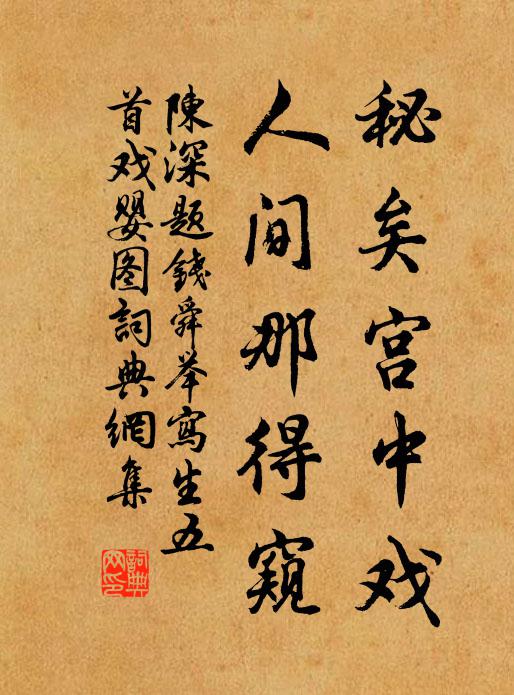 秘矣宫中戏
人间那得窥
陳深题錢舜举寫生五
首戏婴图詞典網集
詞典网印